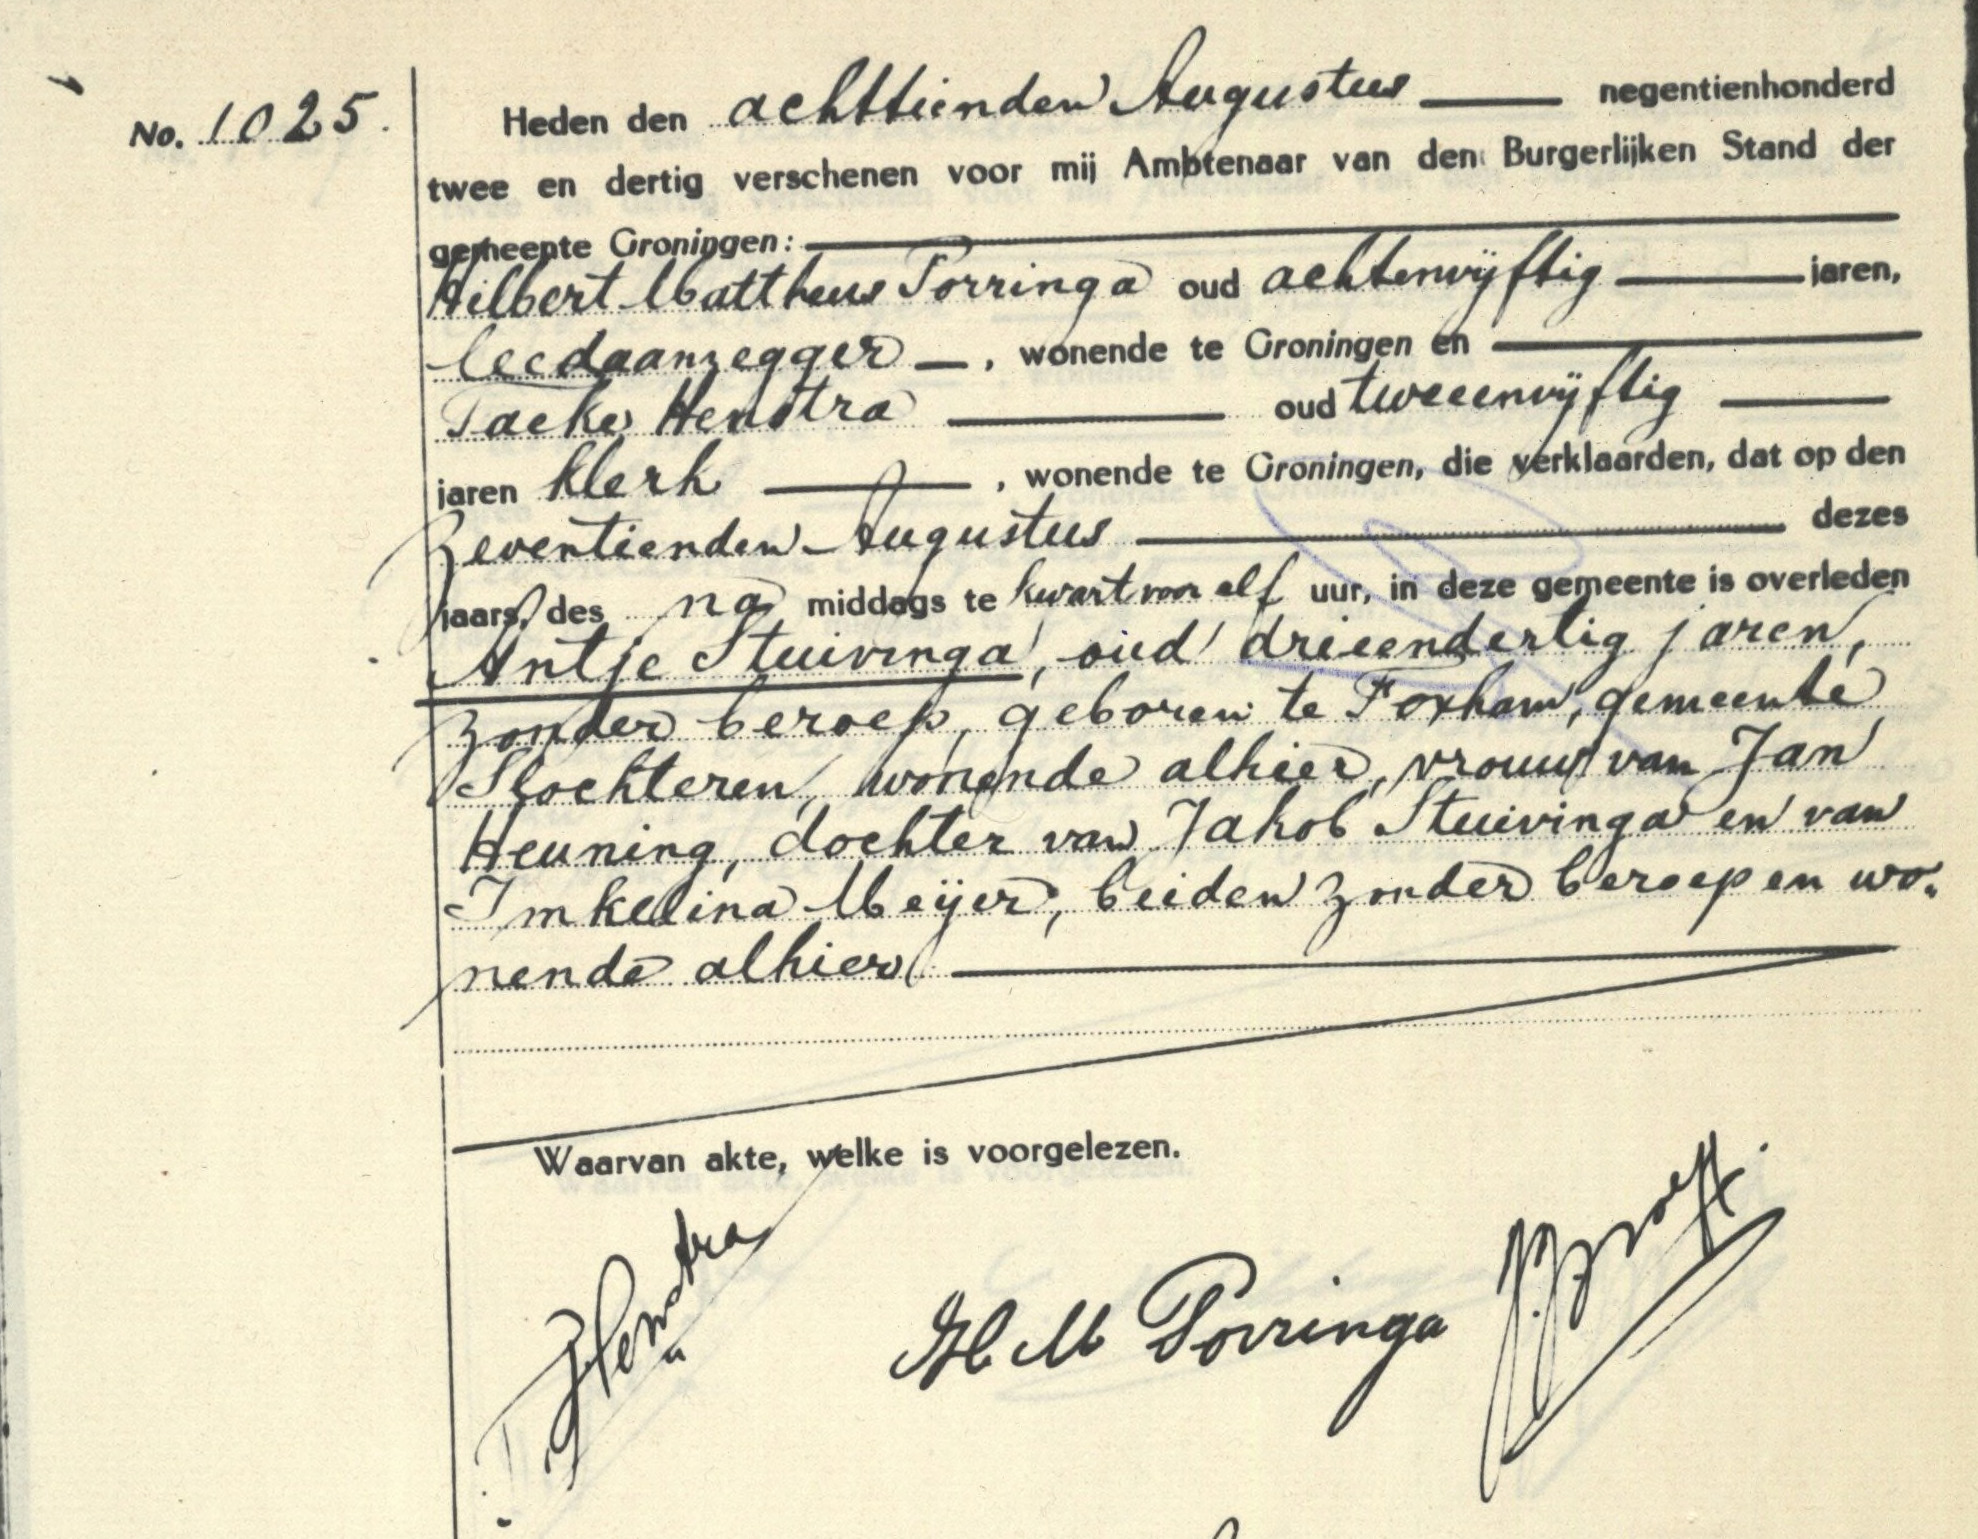 No. 1025.
Heden den achttienden Augustus negentienhonderd
twee en dertig verschenen voor mij Ambtenaar van den Burgerlijken Stand der
gemeente Groningen:
Hilbert Mattheus Porringa oud achtenvijftig jaren,
leedaanzegger, wonende te Groningen en
Taeke Henstra oud tweeenvijftig
jaren klerk, wonende te Groningen, die verklaarden, dat op den
zeventienden Augustus dezes
jaars, des na middags te kwart voor elf uur, in deze gemeente is overleden
Antje Stuivinga, oud drieendertig jaren,
zonder beroep, geboren te Foxham, gemeente
Slochteren, wonende alhier, vrouw van Jan
Heuning, dochter van Jakob Stuivinga en van
Imkelina Meijer, beiden zonder beroep en wo-
nende alhier
Waarvan akte, welke is voorgelezen.
THenstra
H M Porringa